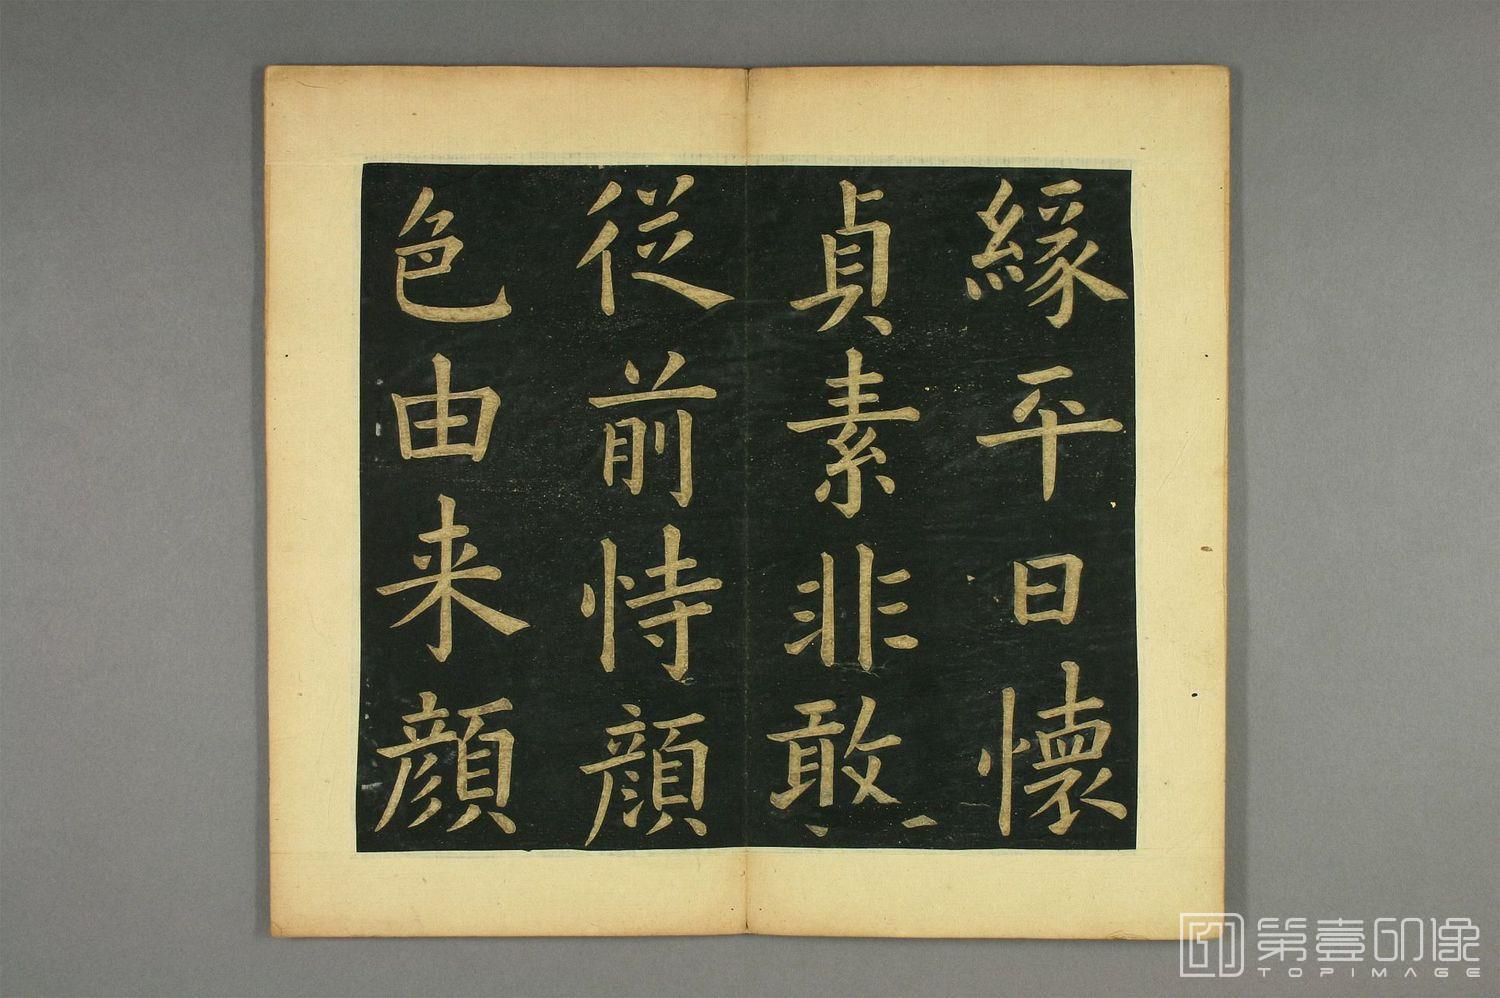 縁平日懷
貞素非敢
従前恃顔
色由来顔
第壹印像
TOPIMAGE